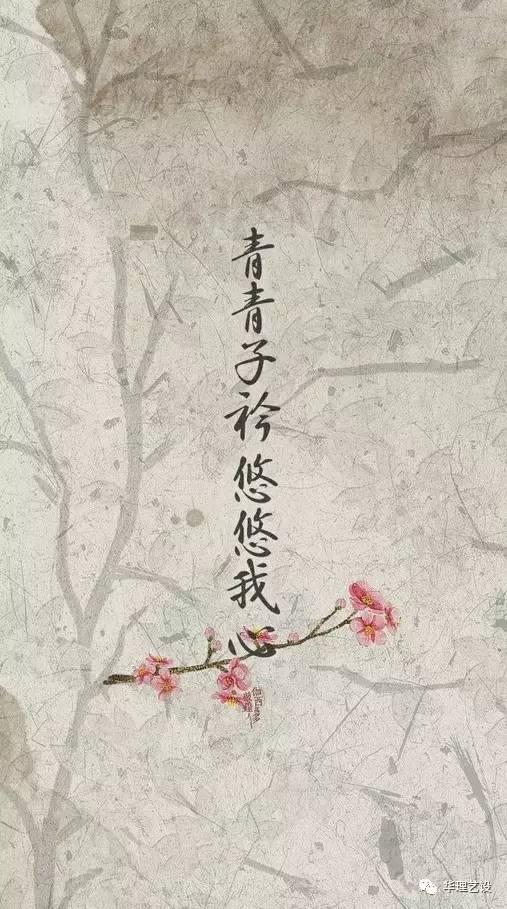 青青子衿悠悠我心
华理艺设